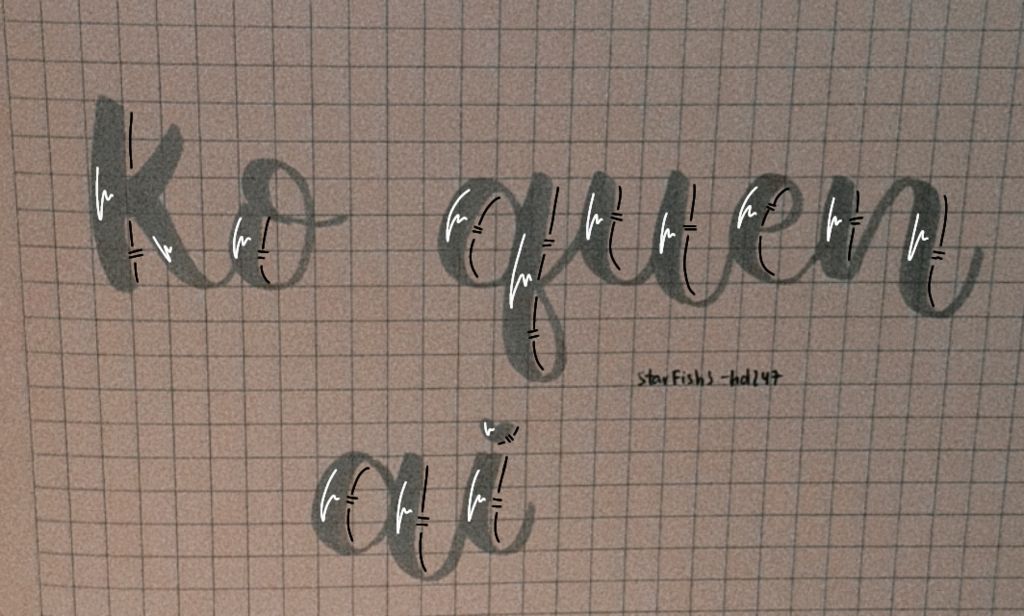 Ko quen
starFishs -hd247
ai